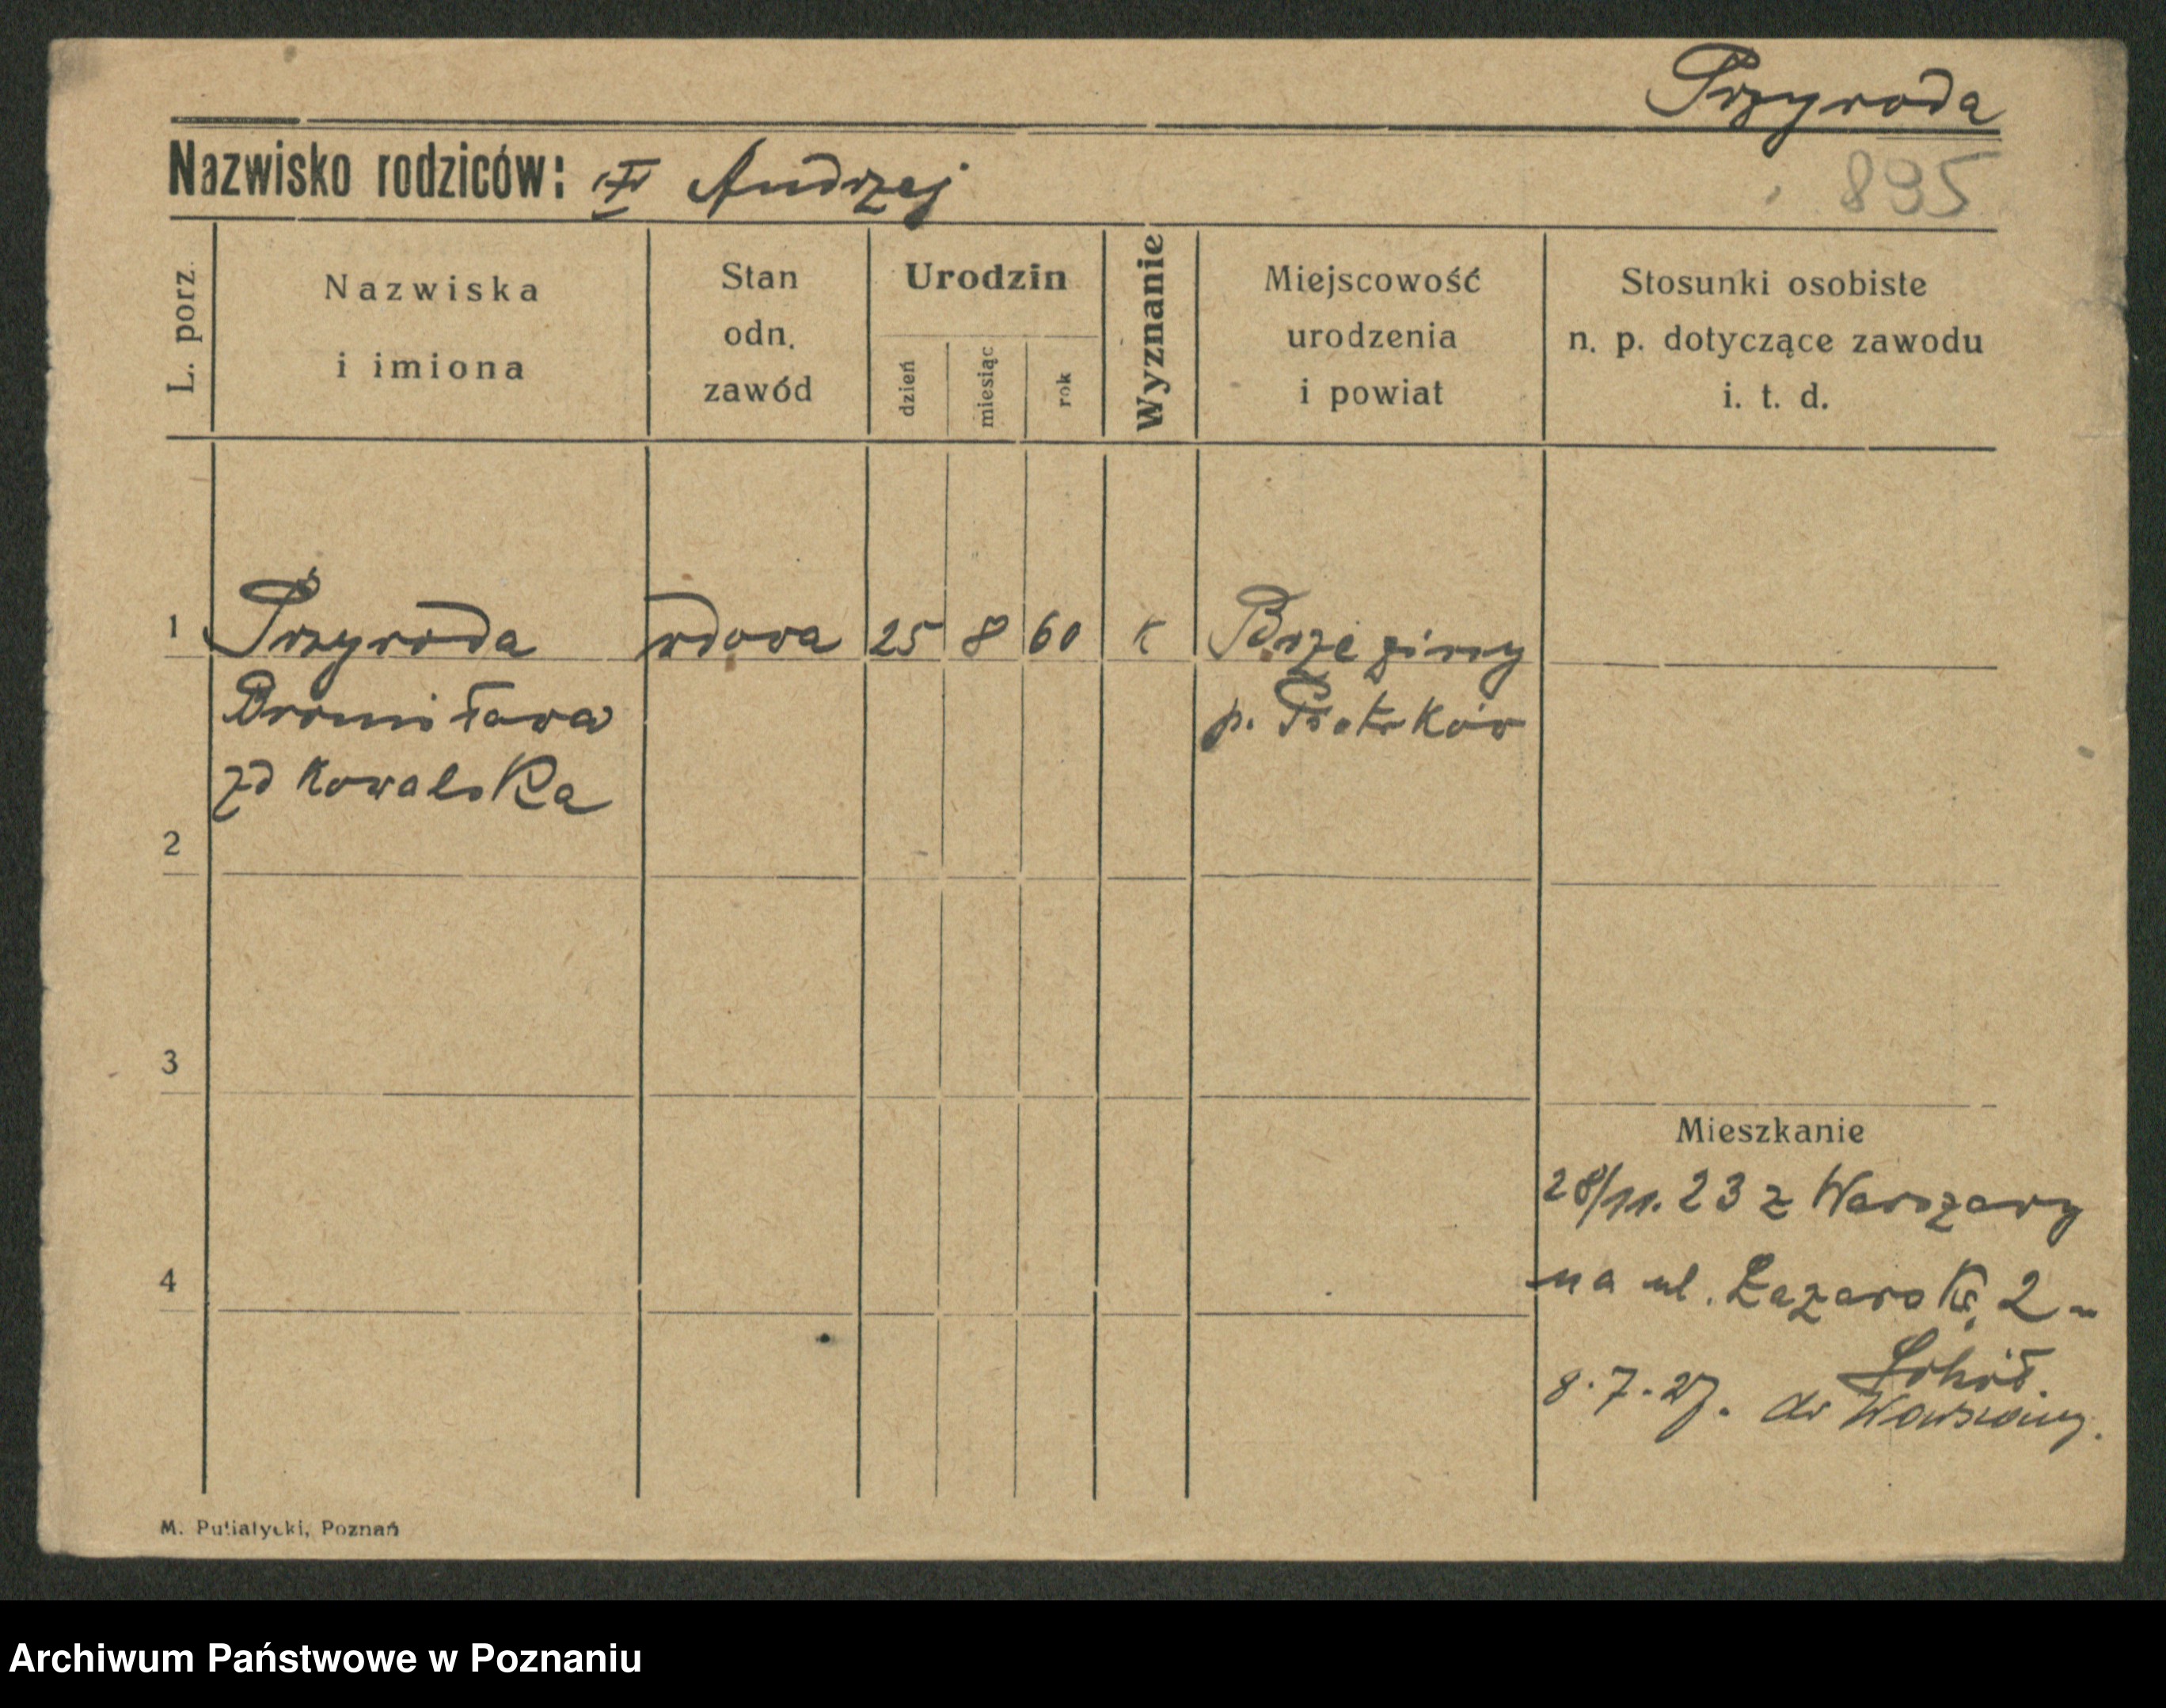 Przyroda
Nazwisko rodziców: Andrzej
895
L. porz.
Nazwiska
i imiona
Stan
odn.
zawód
Urodzin
dzień
miesiąc
rok
Wyznanie
Miejscowość
urodzenia
i powiat
Stosunki osobiste
n. p. dotyczące zawodu
i. t. d.
1 Przyroda wdowa 25 8 60 K Brzeziny
Bronisława p. Piotrków
zd Kowalska
2
3
Mieszkanie
28/11. 23 z Warszawy
4
na ul. Łazarska 2
8. 7. 27. do Warszawy.
M. Putiatycki, Poznań
Archiwum Państwowe w Poznaniu